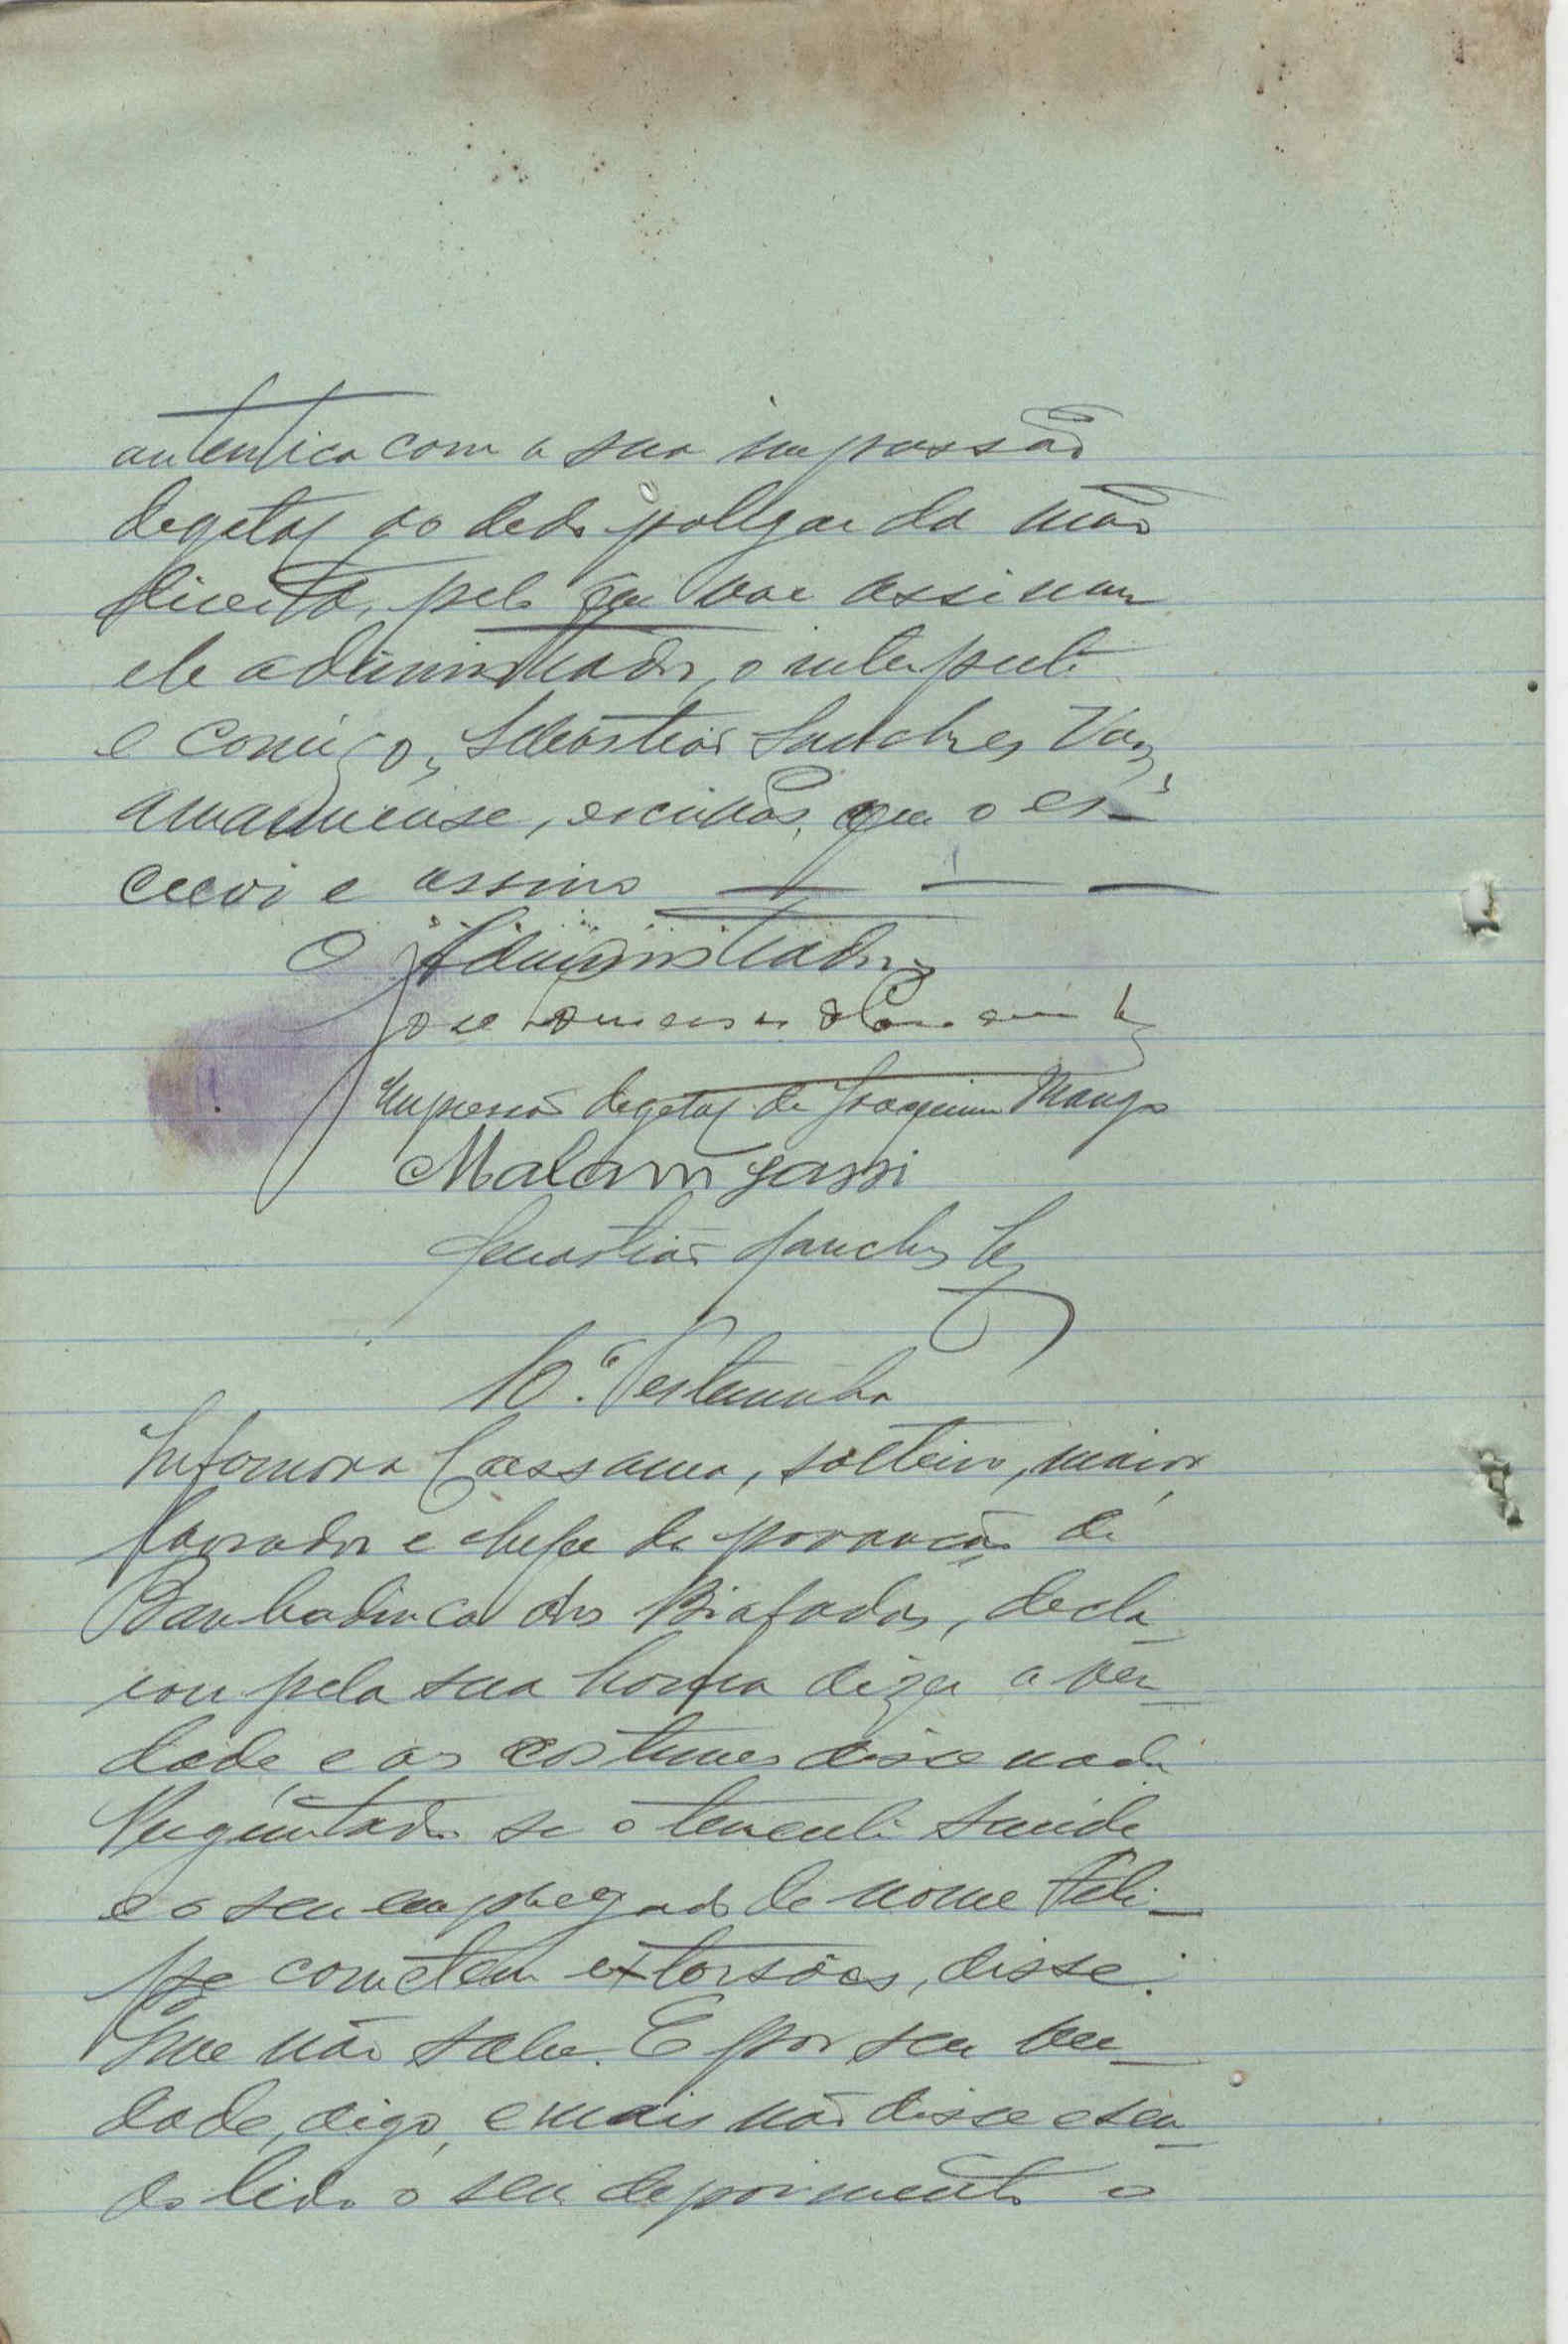 autentica com a sua impressão
degetal do dedo polegar da mão
direita, pelo que vae assinar
ele administrador, o interprete
e comigo, Sebastião Sanches Vaz,
amanuense, escrivão, que o es-
crevi e assino — — —
O Administrador
José
Impressão degetal de Joaquim Mango
Malam Jassi
Sebastião Sanches Vaz
10.ª Testemunha
Cassama, solteiro, maior,
lavrador e chefe da povoação de
Bambadinca dos Biafadas, decla
rou pela sua honra dizer a ver-
dade e aos costumes disse nada
Perguntado se o tenente
e o seu empregado de nome Feli-
pe cometem extorsões, disse:
Que não sabe. E por ser ver-
dade, digo, e mais não disse e sen-
do lido o seu depoimento o